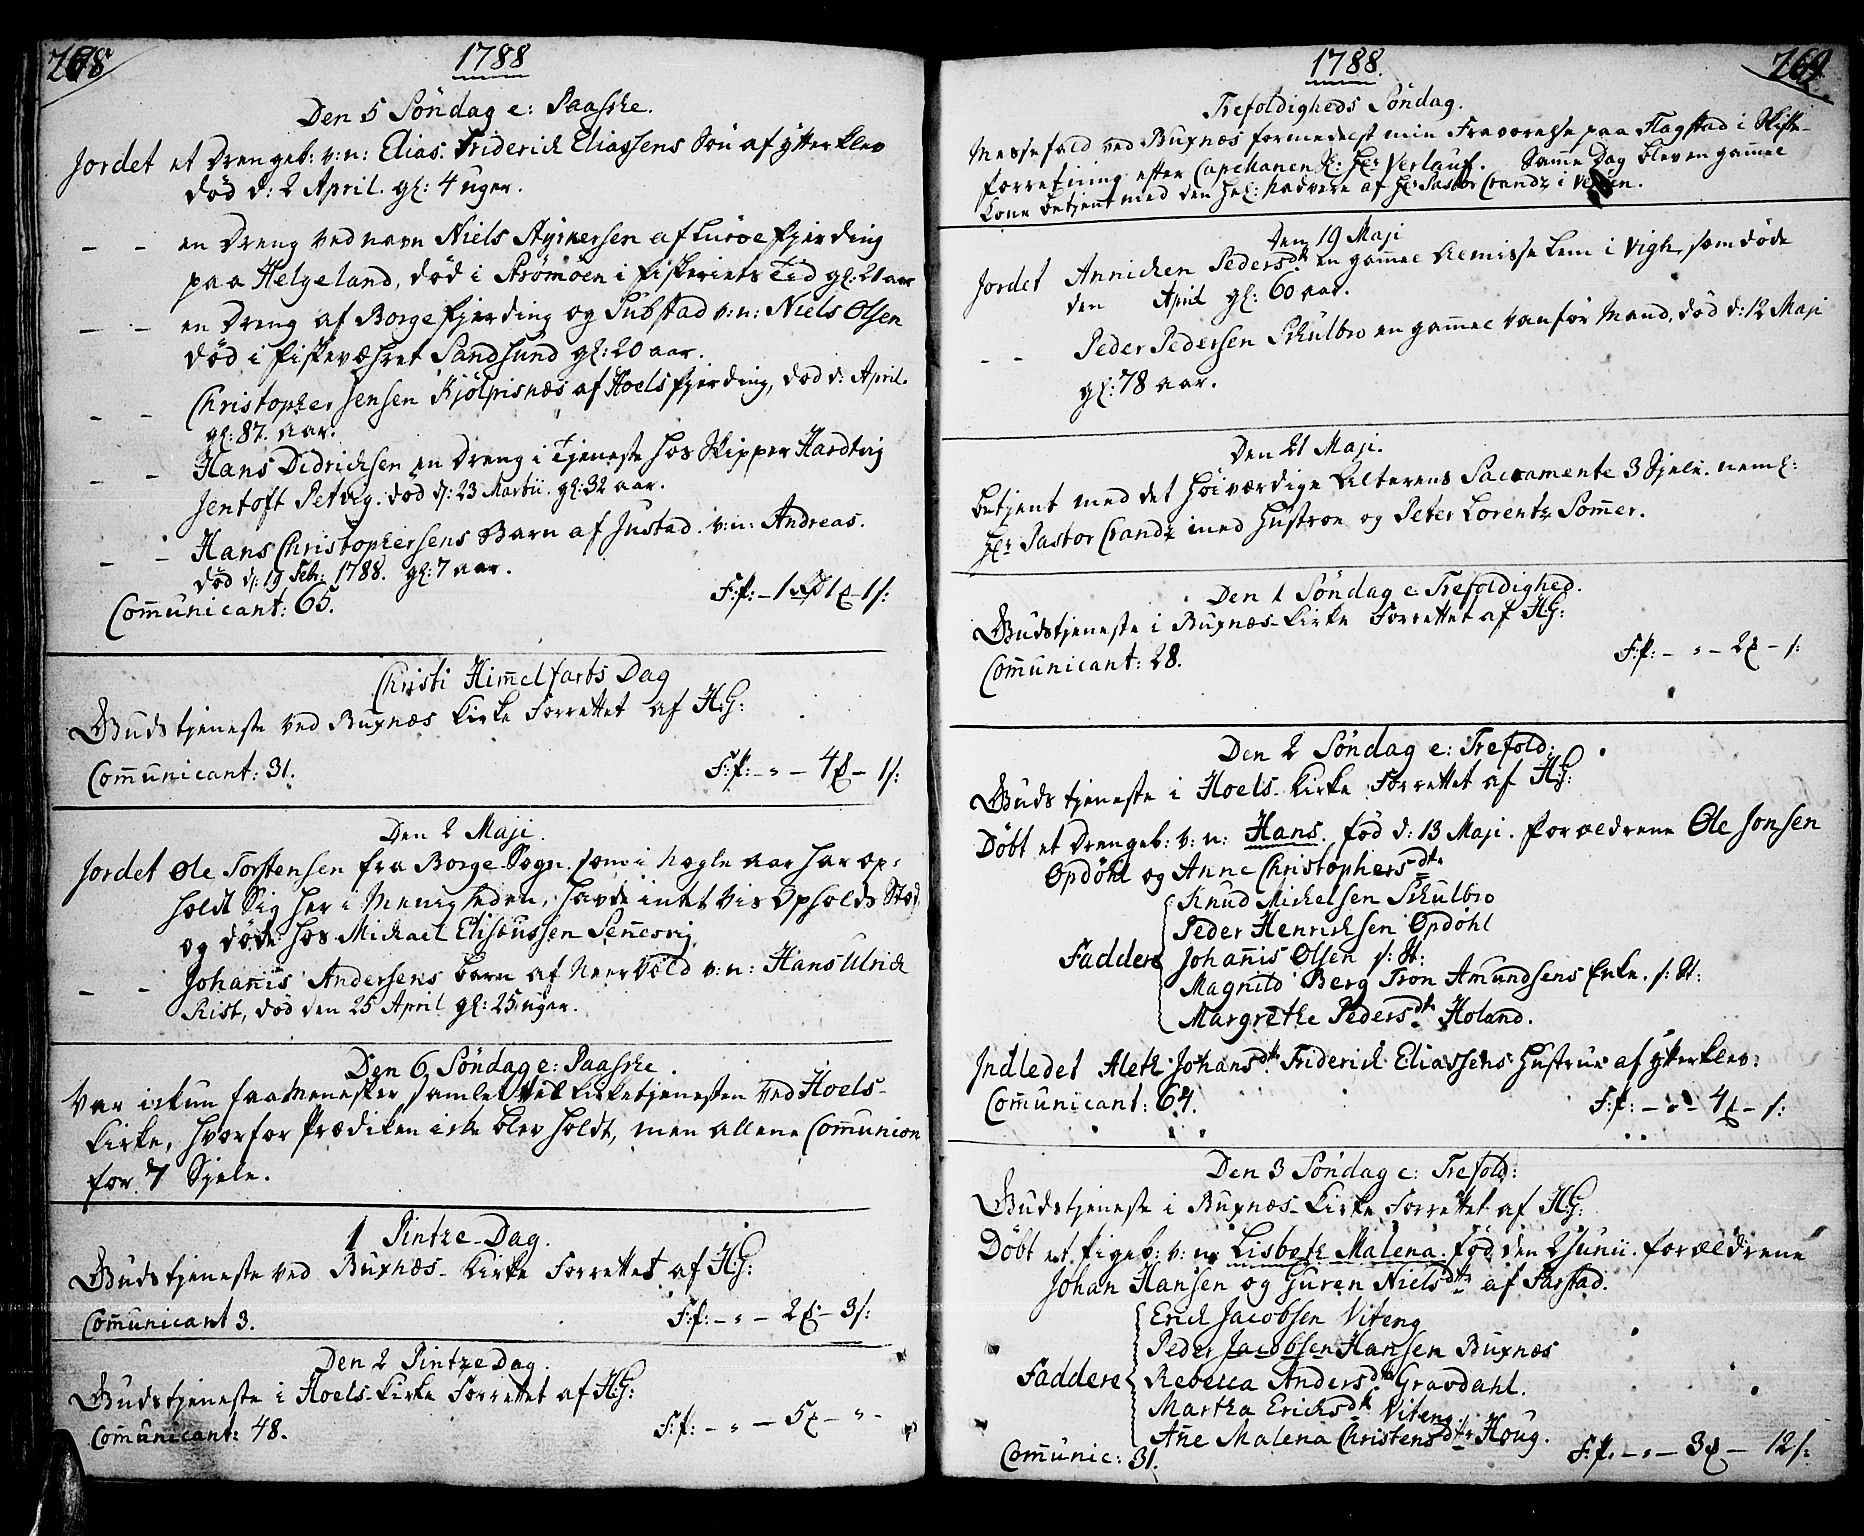 268
1788
Den 5 Söndag e: Paasske.
Jordet et Drengeb: v: n: Elias. Friderick Eliassens Sön af ytterklev
död d: 2 April. gl: 4 uger.
– – en Dreng ved navn Niels Ayskersen af Luröe fjerding
paa Helgeland, död i Strömöen i fiskeriets Tid gl: 21 aar
– – en Dreng af Borge fjerding og Substad v: n: Niels Olsen
död i fiskeværet Sandsund gl: 20 aar.
– – Christopher Jensen Kjölpisnæs af Hoels fjerding, död d: April.
gl: 87. aar.
– – Hans Didricksen en Dreng i Tjeneste hos Skipper Hardtvig
Jentoft Petvig. död d: 23 Martii. gl: 32 aar.
– – Hans Christophersens Barn af Justad. v: n: Andreas.
död d: 19 Febr: 1788. gl: 7 aar.
Com̄unicant: 65.
Christi Him̄elfarts Dag
Gudstjeneste ved Buxnæs Kirke Forrettet af H.G:
Com̄unicant: 31.
Den 2 Maji.
Jordet Ole Torstensen fra Borge Sogn, som i nogle aar har op-
holdt Sig her i Menigheden, havde intet vis Opholds Sted,
og döde hos Mickael Elisæussen Sen̄esvig.
– – Johan̄is Andersens barn af Neer Vold v: n: Hans Ulrick
Rist, död den 25 April gl: 25 uger.
Den 6 Söndag e: Paasske.
Var ickun faa Mennesker samlet ved Kirketjenesten ved Hoels-
Kirke, hvorfor Prædiken icke blev holdt, men allene Com̄union
for 7 Sjele.
1 Pintze-Dag.
Gudstjeneste ved Buxnæs-Kirke Forrettet af H.G:
Com̄unicant 3.
Den 2 Pintze Dag.
Gudstjeneste i Hoels-Kirke Forrettet af H.G:
Com̄unicant: 48.
1788.
269
Trefoldigheds Söndag.
Messefald ved Buxnæs formedelst min Fraværelse paa Flagstad i Skifte-
forretning efter Capellanen Hr: Verlauf. Sam̄e Dag blev en gammel
Kone betjent med den hel: Nadvere af Hr Pastor Crandz i
Den 19 Maji
Jordet Annichen Pedersdtr en gammel Remisse Lem i Vigh, som döde
den April gl: 60 aar.
– – Peder Pedersen Skulbro en gammel Vanför Mand, död d: 12 Maji
gl: 78 aar.
Den 21 Maji.
betjent med det höiværdige Alterens Sacramente 3 Sjele. neml:
Hr Pastor Crandz med Hustroe og Peter Lorentz Som̄er.
Den 1 Söndag e: Trefoldighed.
Gudstjeneste i Buxnæs-Kirke Forrettet af H.G:
Com̄unicant: 28.
Den 2 Söndag e: Trefold:
Gudstjeneste i Hoels-Kirke Forrettet af H.G:
Döbt et Drengeb: v: n: Hans. född d: 13 Maji. forældrene Ole Jonsen
Opdöhl og Anne Christophersdtr
Faddere
Knud Mickelsen Skulbro
Peder Henricksen Opdöhl
Johan̄is Olsen s: St:
Magnild Berg Tron Amundsens Enke. s: St:
Margrethe Pedersdtr Holand.
Indledet Aleth Johansdtr Friderick Eliassens Hustrue af ytterklev:
Com̄unicant: 64.
Den 3 Söndag e: Trefold:
Gudstjeneste i Buxnæs-Kirke Forrettet af H.G:
Döbt et Pigeb: v: n: Lisbeth Malena. föd den 2 Junii. forældrene
Johan Hansen og Guren Nielsdtr af Farstad.
Faddere
Erick Jacobsen Viteng
Peder Jacobsen Hansen Buxnæs
Rebecca Andersdtr Gravdahl.
Martha Ericksdtr Viteng.
An̄e Malena Christensdtr Houg.
Com̄unic: 31.